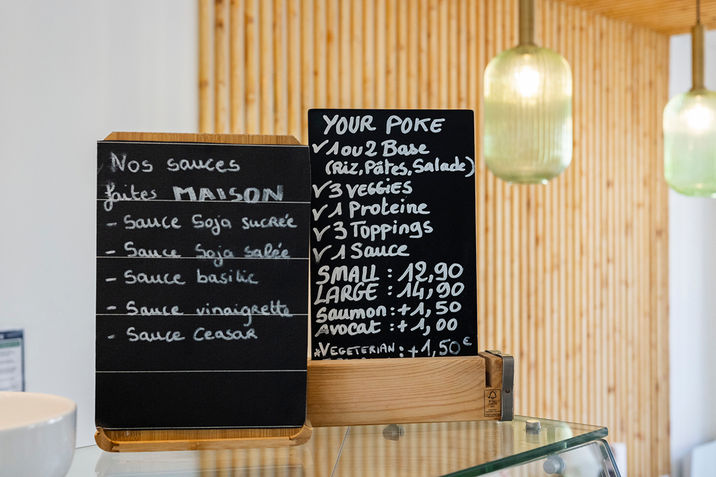 Nos sauces
faites MAISON
- Sauce Soja sucrée
- Sauce Soja salée
- Sauce basilic
- Sauce vinaigrette
- Sauce Ceasar
YOUR POKE
✓ 1 ou 2 Base
(Riz, Pâtes, Salade)
✓ 3 VEGGIES
✓ 1 Proteine
✓ 3 Toppings
✓ 1 Sauce
SMALL : 12,90
LARGE : 14,90
Saumon : +1,50
Avocat : +1,00
*VEGETERIAN : +1,50€